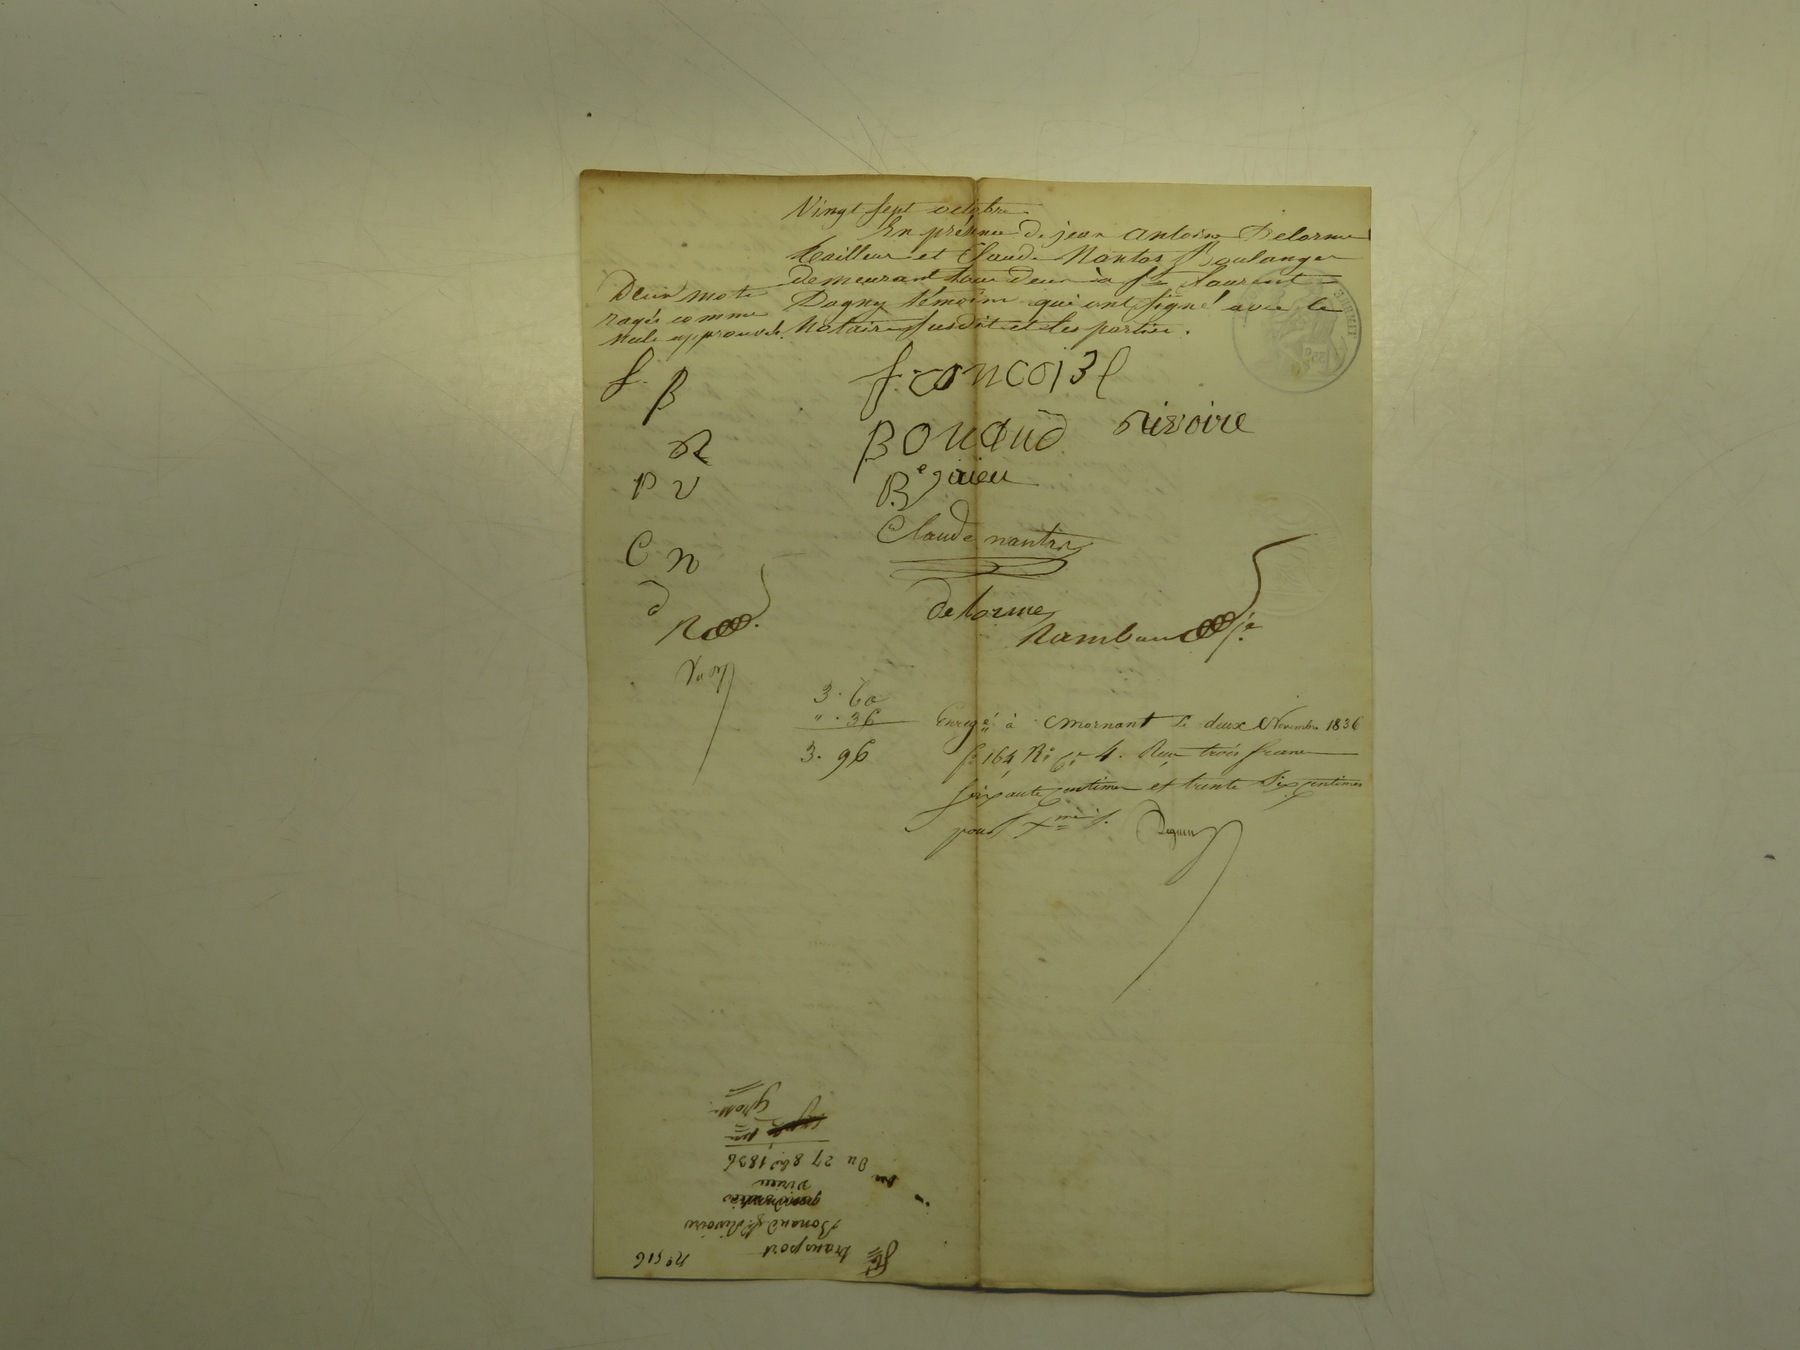 Vingt sept octobre
En présence de jean Antoine Delorme
tailleur et Claude Nantas Boulanger
demeurant tous deux à St Laurent
Dagny témoins qui ont signé avec le
Notaire susdit et les parties.
Deux mots
rayés comme
nuls approuvés.
f. B
R
P V
C n
d
francois
Bonand rivoire
Claude nantas
delorme
Rambau
3. 60
" . 36
3. 96
Enregé à Mornant le deux Novembre 1836
fo 164 Ro Ce 4. Reçu trois francs
soixante centimes et trente six centimes
pour
no 516
transport
Bonand f. Rivoire
Virieu
Du 27 8bre 1836